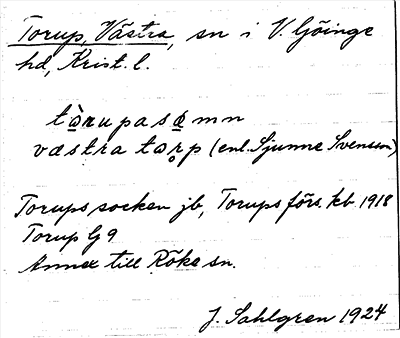 Torup, Västra, sn i V. Göinge
hd, Krist. l.
tòrupasómn
væstra tarp (enl. Sjunne Svensson)
Torups socken jb, Torups förs. kb. 1918
Torup G 9
Annex till Röke sn.
J. Sahlgren 1924